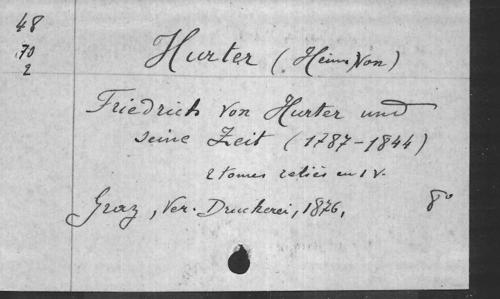 48
70
2
Hurter (Heinr. Von)
Friedrich von Hurter und
seine Zeit (1787-1844)
2 tomes reliés en 1 v.
Graz, Ver. Druckerei, 1876, 8°